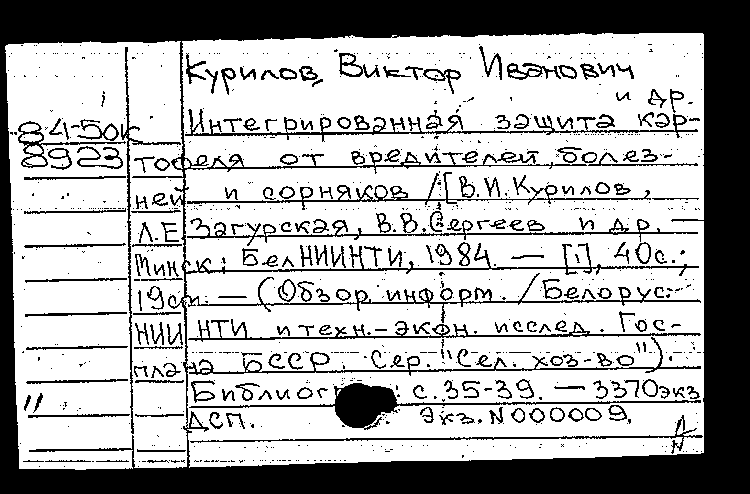 Курилов, Виктор Иванович
и др.
84-50к Интегрированная защита кар-
8923 тофеля от вредителей, болез-
ней и сорняков / [В.И. Курилов,
Л.Е. Загурская, В.В. Сергеев и др. —
Минск: БелНИИНТИ, 1984. — [1], 40с.;
19см. — (Обзор. информ. / Белорус.
НИИ НТИ и техн.-экон. исслед. Гос-
плана БССР. Сер. "Сел. хоз-во").
с. 35-39. — 3370экз
" ДСП. Экз. N000009.